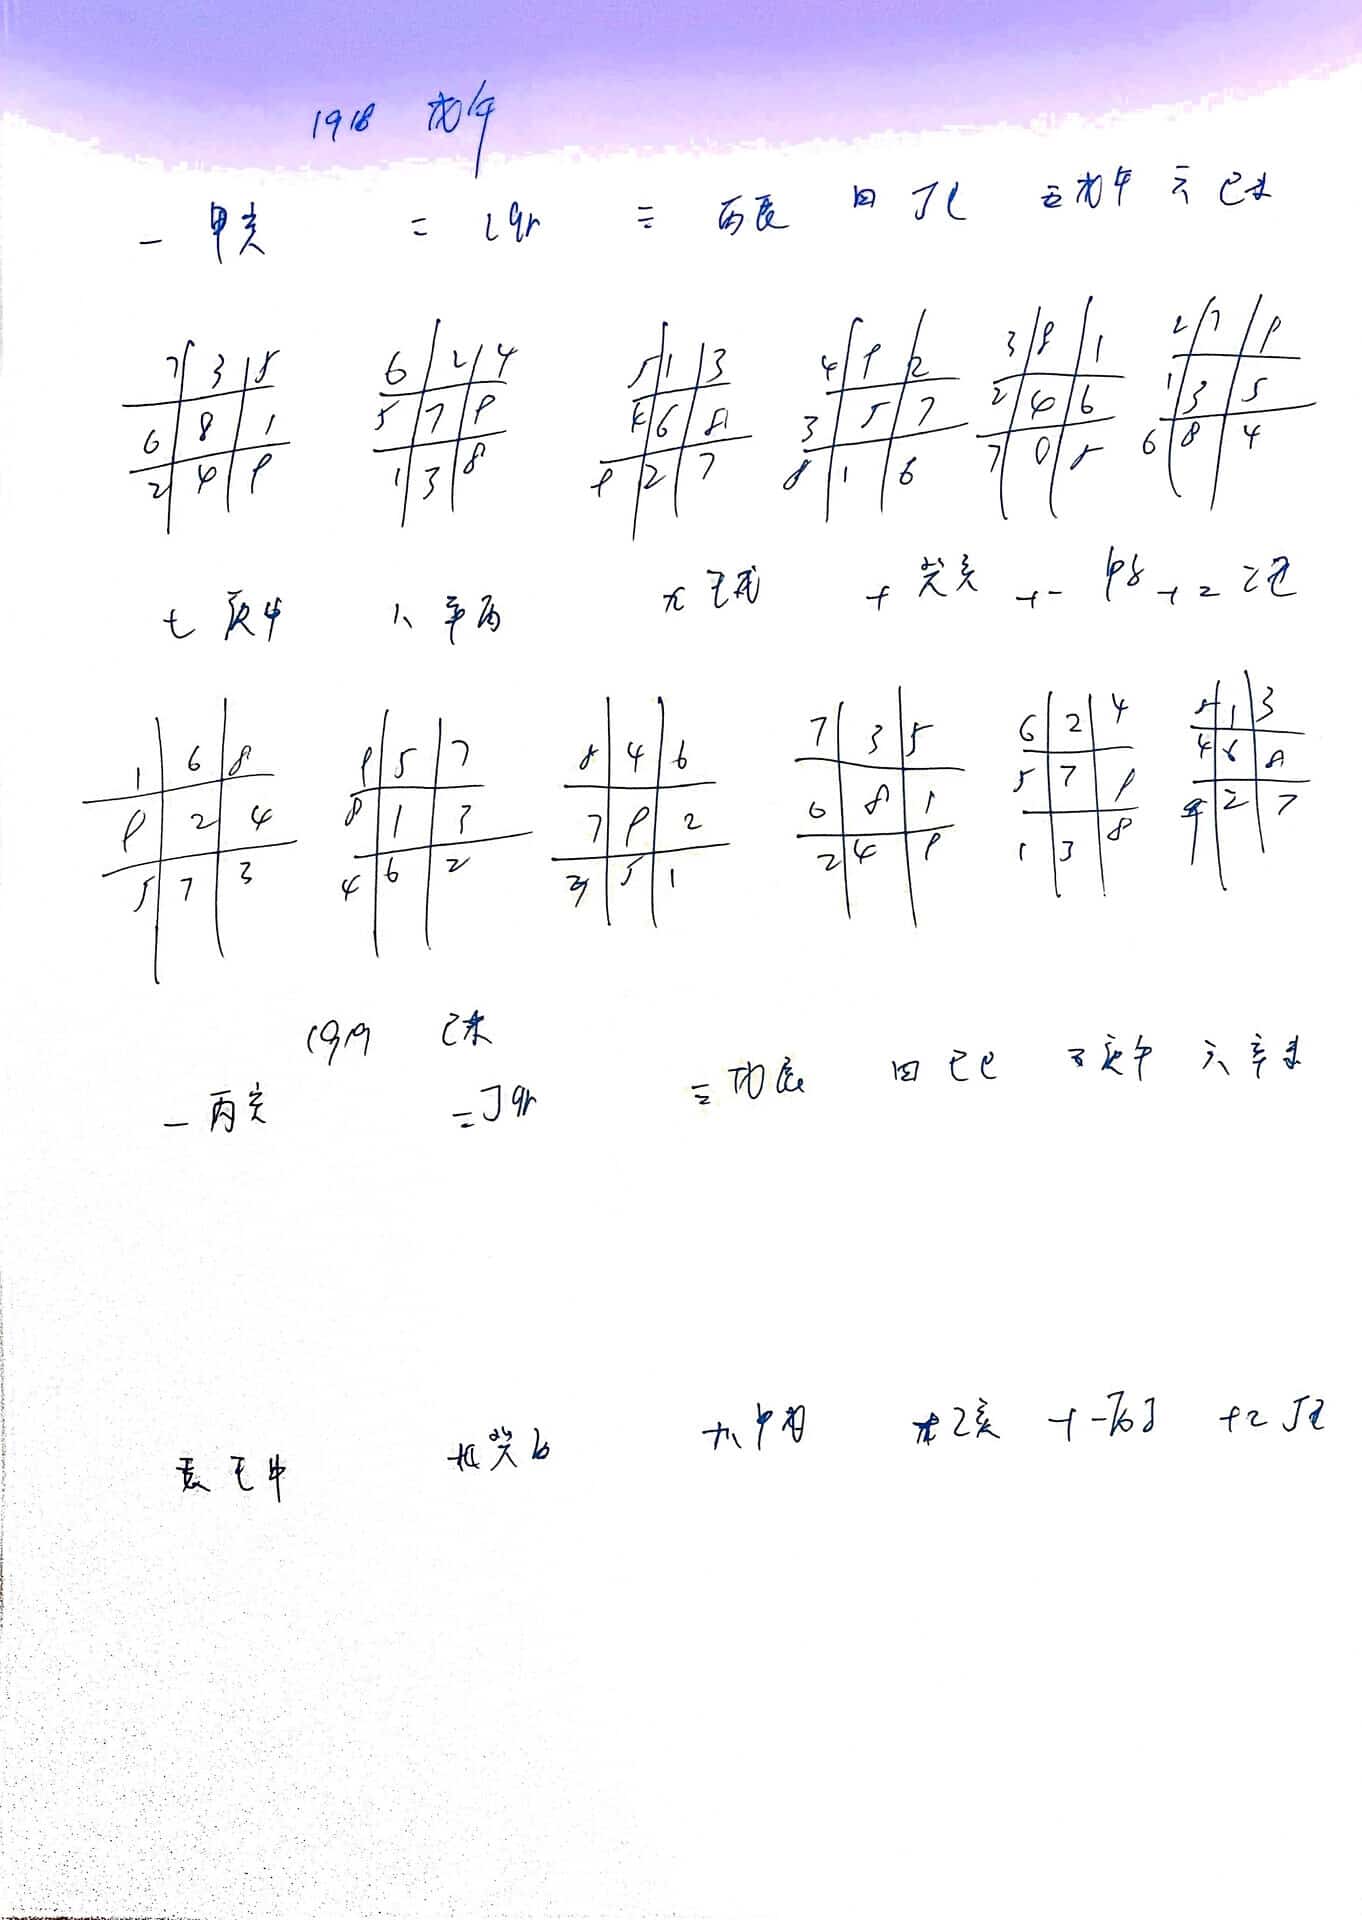 1918 戊午
一 甲寅 二 乙卯 三 丙辰 四 丁巳 五 戊午 六 己未
7 3 5 6 2 4 5 1 3 4 9 2 3 8 1 2 7 9
6 8 1 5 7 9 4 6 8 3 5 7 2 4 6 1 3 5
2 4 9 1 3 8 9 2 7 8 1 6 7 5 6 8 4
七 庚申 八 辛酉 九 壬戌 十 癸亥 十一 甲子 十二 乙丑
1 6 8 9 5 7 8 4 6 7 3 5 6 2 4 5 1 3
9 2 4 8 1 3 7 9 2 6 8 1 5 7 9 4 6 8
5 7 3 4 6 2 3 5 1 2 4 9 1 3 8 2 7
1919 己未
一 丙寅 二 丁卯 三 戊辰 四 己巳 五 庚午 六 辛未
壬申 癸酉 甲戌 乙亥 十一 丙子 十二 丁丑